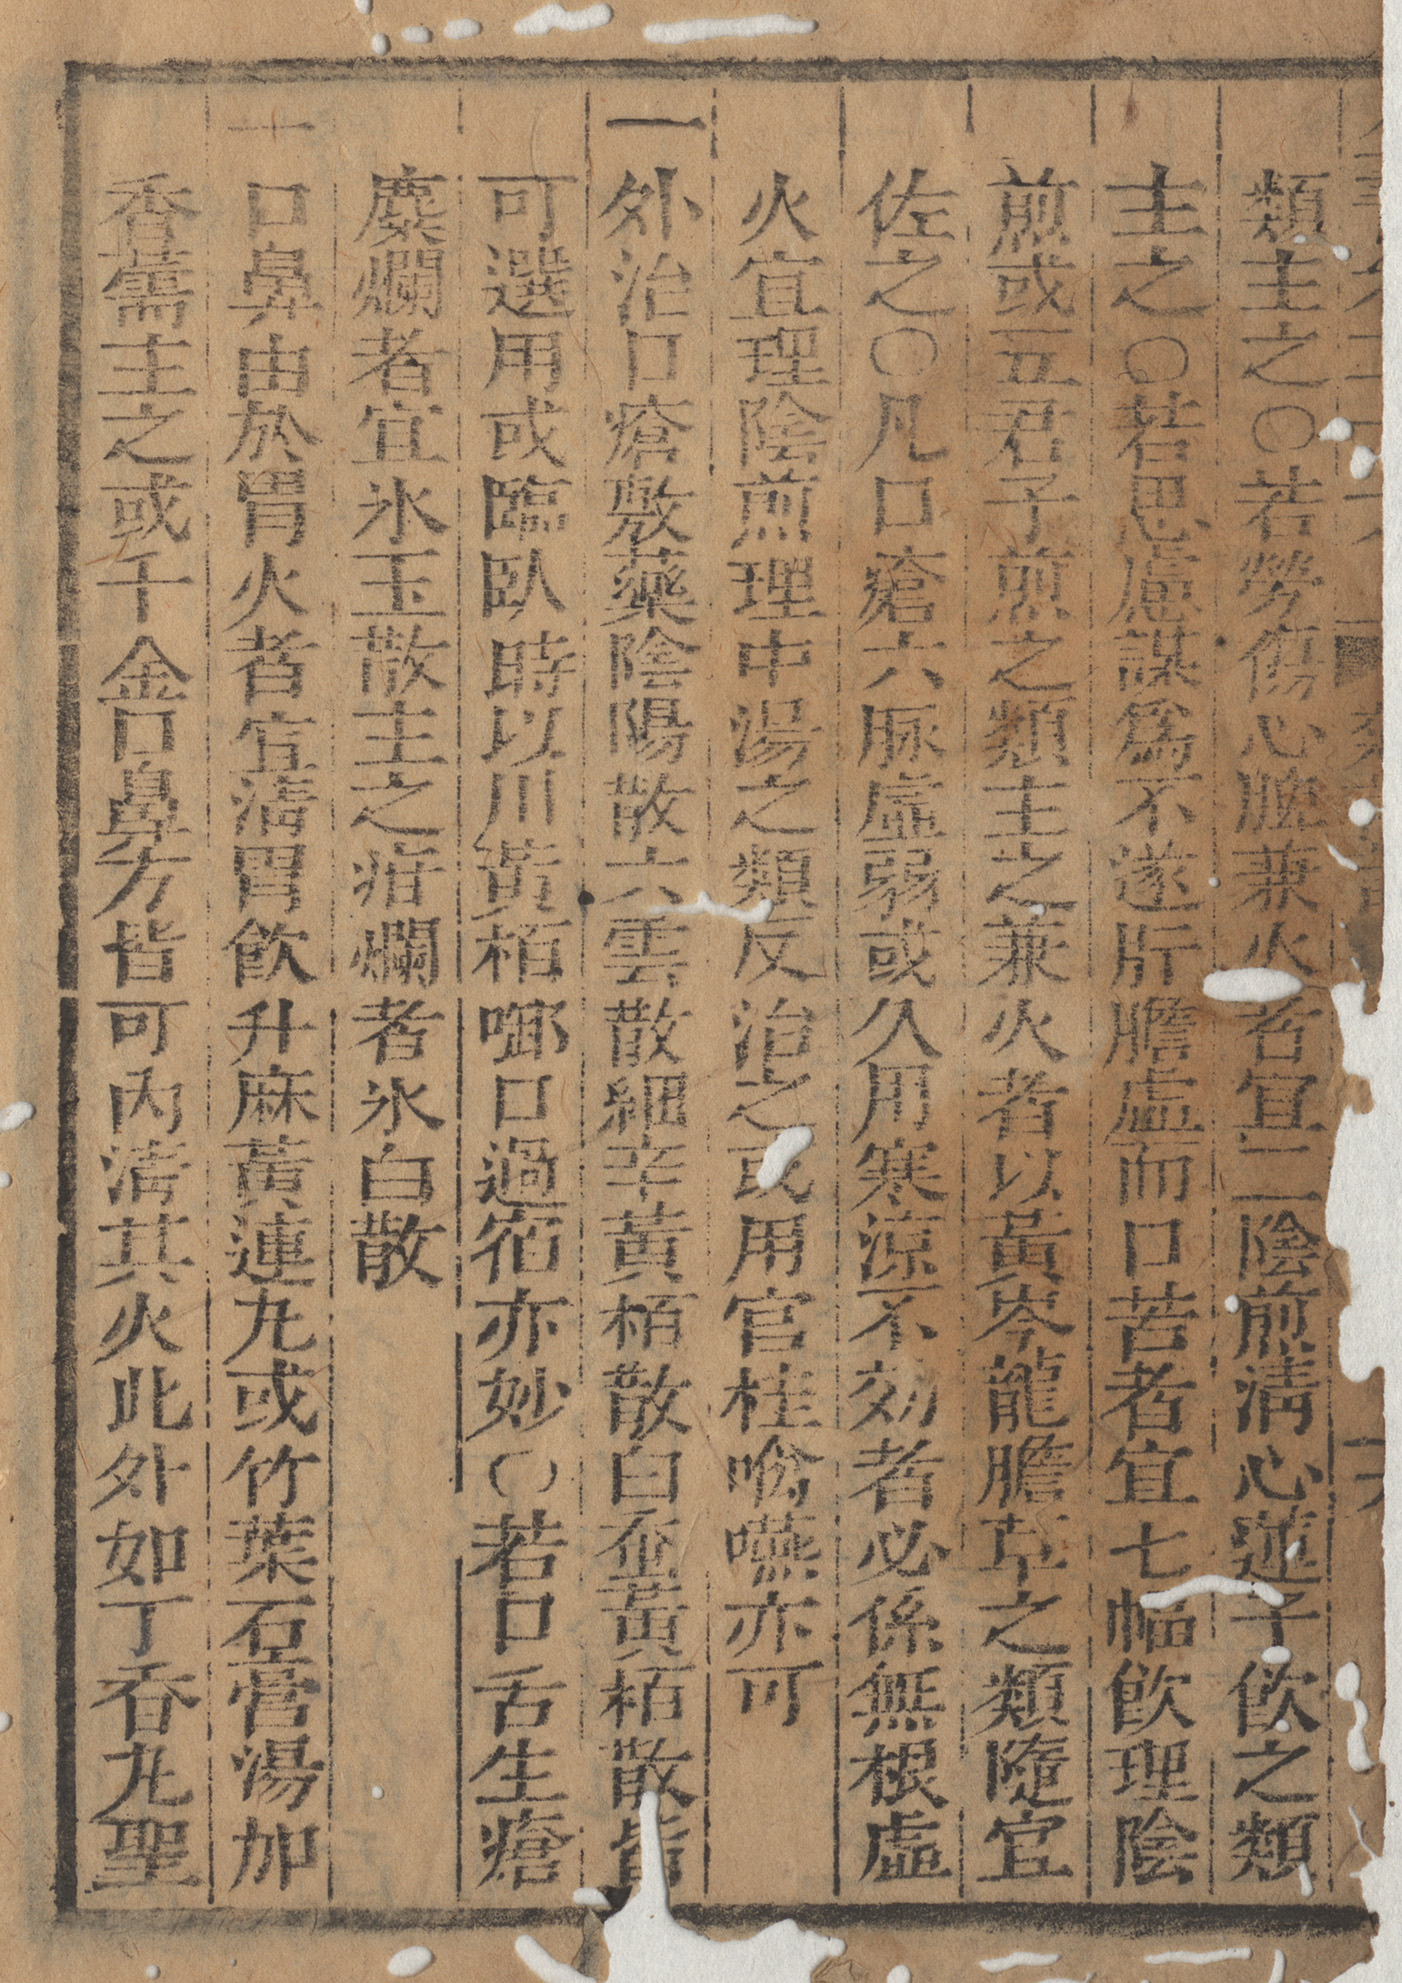 類主之〇若勞傷心脾兼火者宜二陰煎淸心蓮子飮之類
主之〇若思慮謀爲不遂肝膽虛而口苦者宜七福飮理陰
煎或五君子煎之類主之兼火者以黃芩龍膽草之類隨宜
佐之〇凡口瘡六脉虛弱或久用寒凉不効者必係無根虛
火宜理陰煎理中湯之類反治之或用官桂噙嚥亦可
一外治口瘡敷藥陰陽散六雲散細辛黃栢散白蚕黃栢散皆
可選用或臨臥時以川黃栢啣口過宿亦妙〇若口舌生瘡
麋爛者宜氷玉散主之疳爛者氷白散
一口鼻由於胃火者宜淸胃飮升麻黃連丸或竹葉石膏湯加
香薷主之或千金口臭方皆可內淸其火此外如丁香丸聖